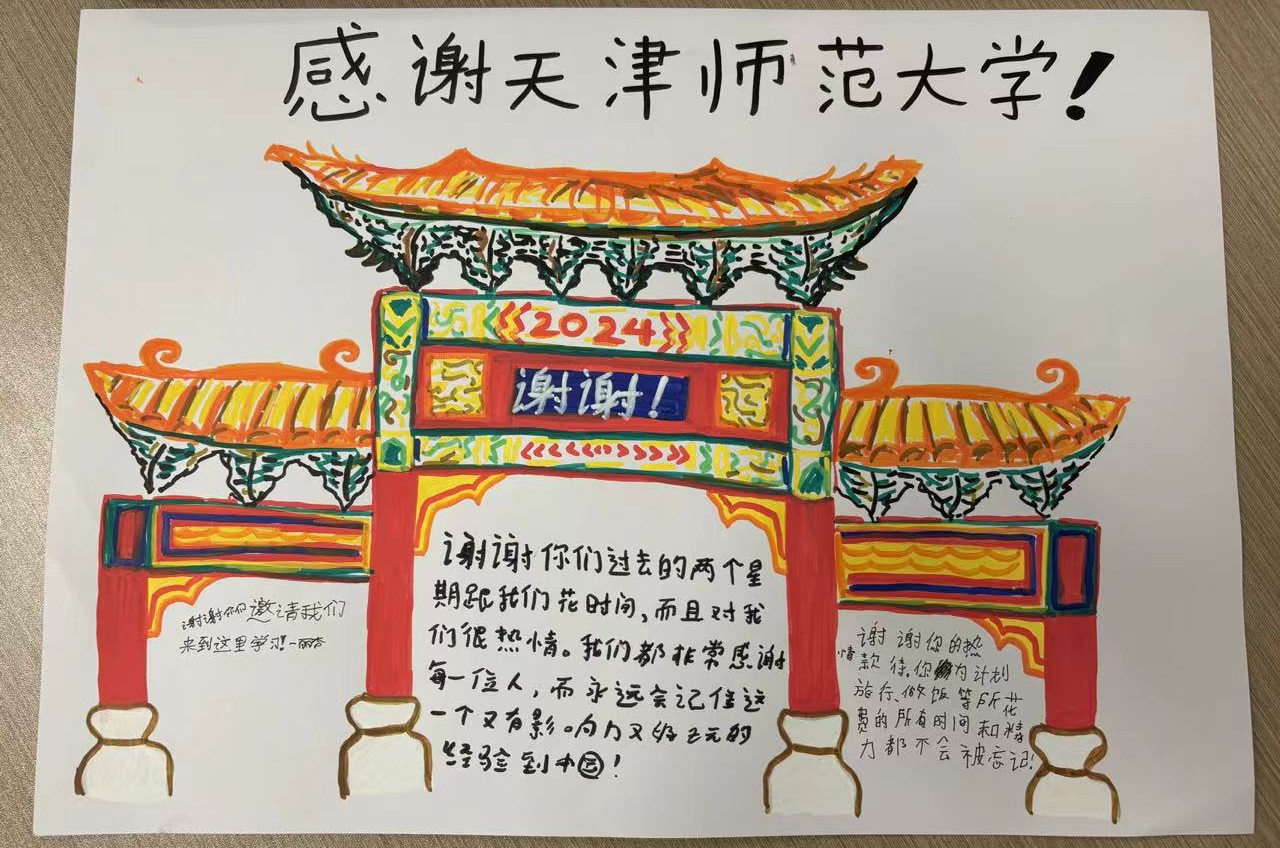 感谢天津师范大学！
2024
谢谢！
谢谢你们过去的两个星
期跟我们花时间，而且对我
们很热情。我们都非常感谢
每一位人，而永远会记住这
一个又有影。向力又
经验到中！
谢谢你们邀请我们
来到这里学习！一丽
谢谢您的热
情款待。你为计划
旅行、做饭等所花
费的所有时间和精
力都不会被忘记！